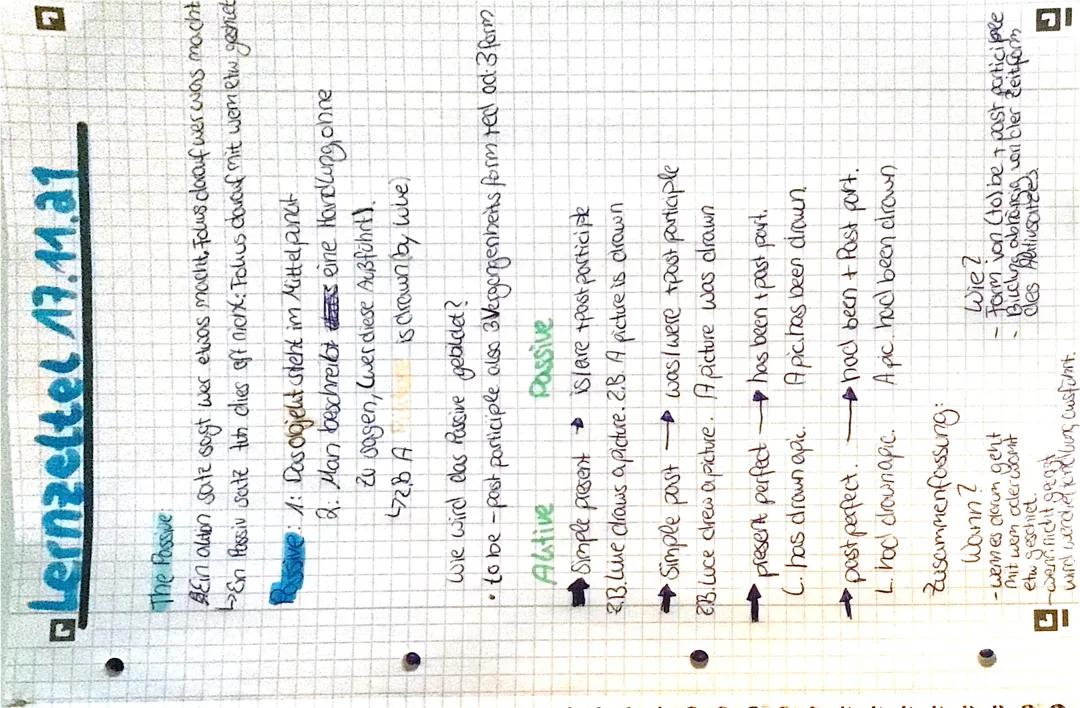 Lernzettel 17.11.21
The Passive
Ein aktiv satz sagt wer etwas macht, Fokus darauf wer was macht
↳ Ein Passiv satz tut dies oft nicht: Fokus darauf mit wem etw. geshiet
Passive: 1: Das objekt steht im Mittelpunkt
2. Man beschreibt eine Handlung, ohne
zu sagen, (wer diese Außführt).
↳ z.B A is drawn (by luke)
Wie wird das Passive gebildet?
• to be - past participle also 3 Vergangenheits form + ed od: 3 form
Aktive Passive
→ Simple present → is/are + past participle
z.B. Luke draws a picture. z.B. A picture is drawn
→ Simple past → was/were + past participle
z.B. Luce drew a picture. A picture was drawn
→ present perfect → has been + past part.
L. has drawn a pic. A pic. has been drawn
→ past perfect. → had been + Past part.
L. had drawn a pic. A pic. had been drawn
Zusammenfassung:
Wann?
- wenn es darum geht
mit wem oder womit
etw geshiet.
- wenn nicht gesagt
wird wer die Handlung ausführt.
Wie?
- Form von (to) be + past participle
- Bildung abhängig von der Zeitform
des Aktivsatzes